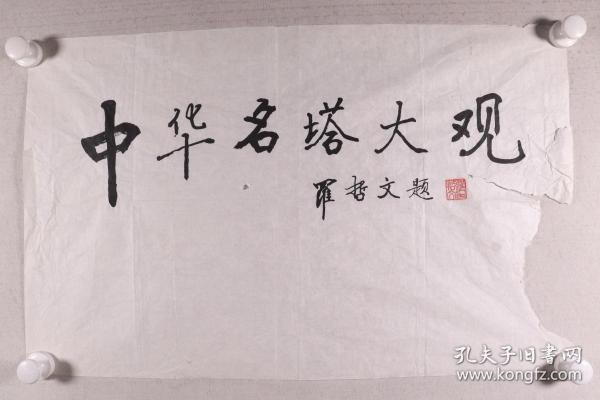 中华名塔大观
羅哲文题
孔夫子旧书网
www.kongfz.com